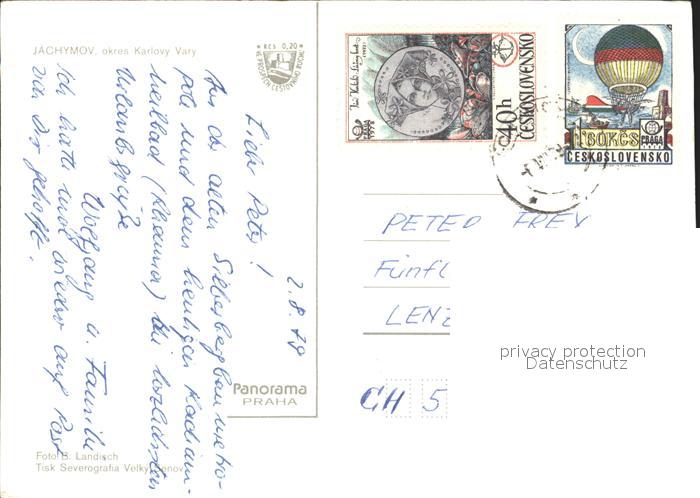 JÁCHYMOV, okres Karlovy Vary
KČS 0,20
VE PROSPĚCH CESTOVNÍHO RUCHU
2.8.79
Liebe Peter!
Aus der alten Silberbergbaumetro-
pole und dem heutigen Radium-
heilbad (Klasina) die herzlichsten
Urlaubsgrüße
Wolfgang u. Familie
Ich hatte mal wieder auf Post
von Dir gehofft.
Foto B. Landisch
Tisk Severografia Velký Šenov
Panorama
PRAHA
PRAGA
1978
40h
ČESKOSLOVENSKO
1.60 KČS
PRAGA
1978
ČESKOSLOVENSKO
PETER FREY
Fünfl
LENZ
CH 5
privacy protection
Datenschutz